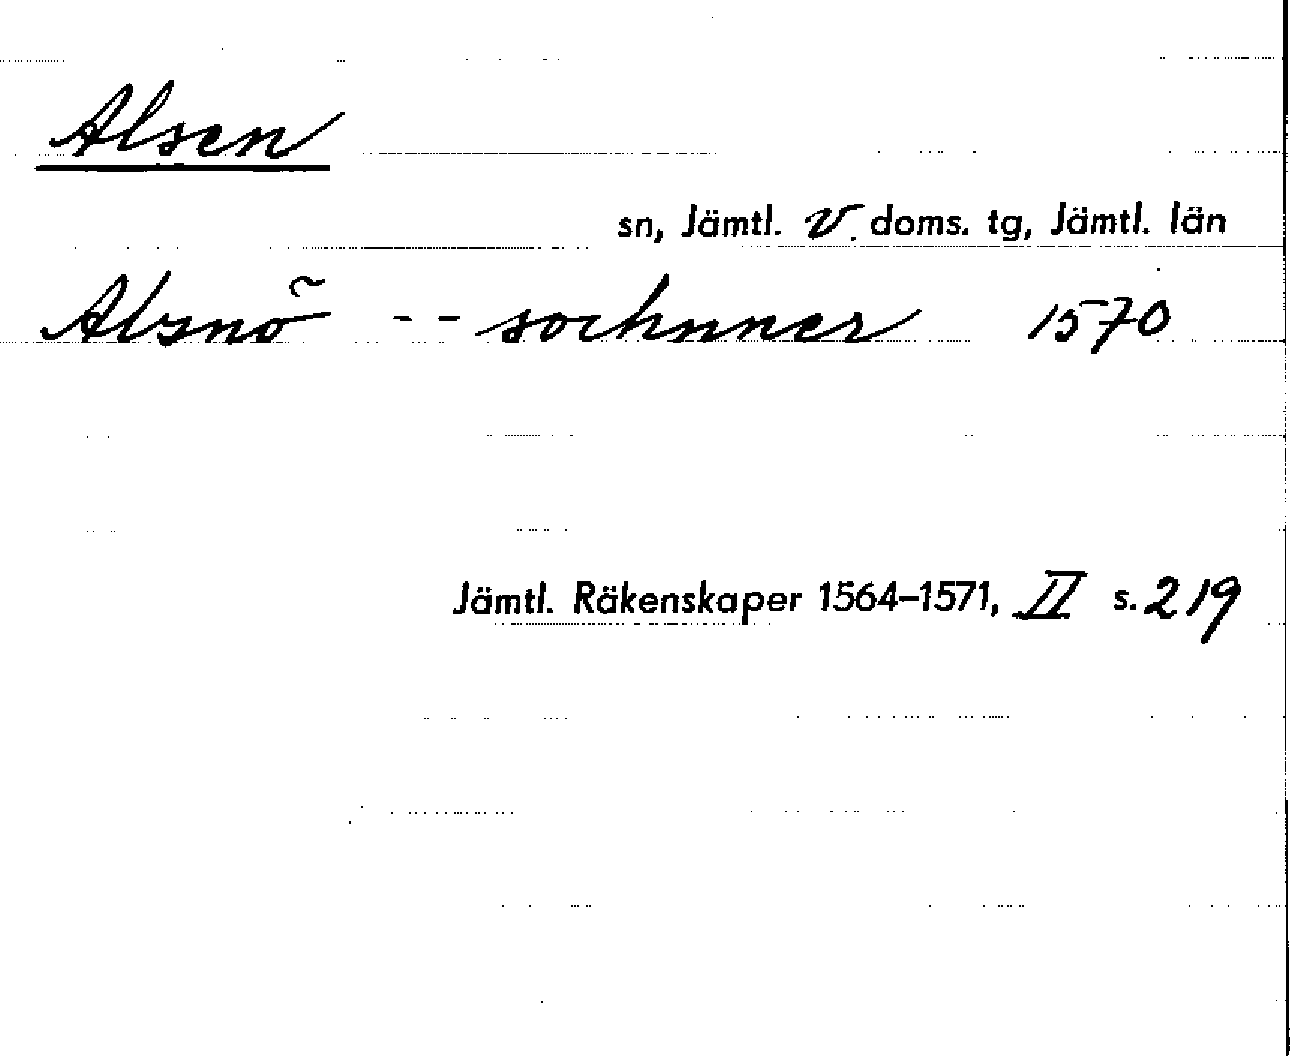 Alsen
sn, Jämtl. V. doms. tg, Jämtl. län
Alsnö̃ -- sochnner 1570
Jämtl. Räkenskaper 1564–1571, II s. 219